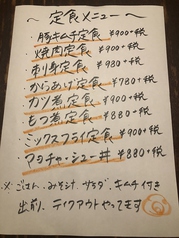 ～ 定食メニュー ～
豚キムチ定食 ¥900+税
焼肉定食 ¥900+税
刺身定食 ¥980+税
からあげ定食 ¥780+税
カツ煮定食 ¥900+税
もつ煮定食 ¥880+税
ミックスフライ定食 ¥900+税
チャーシュー丼 ¥880+税
※ ごはん、みそ汁、サラダ、キムチ付き
出前、テイクアウトやってます